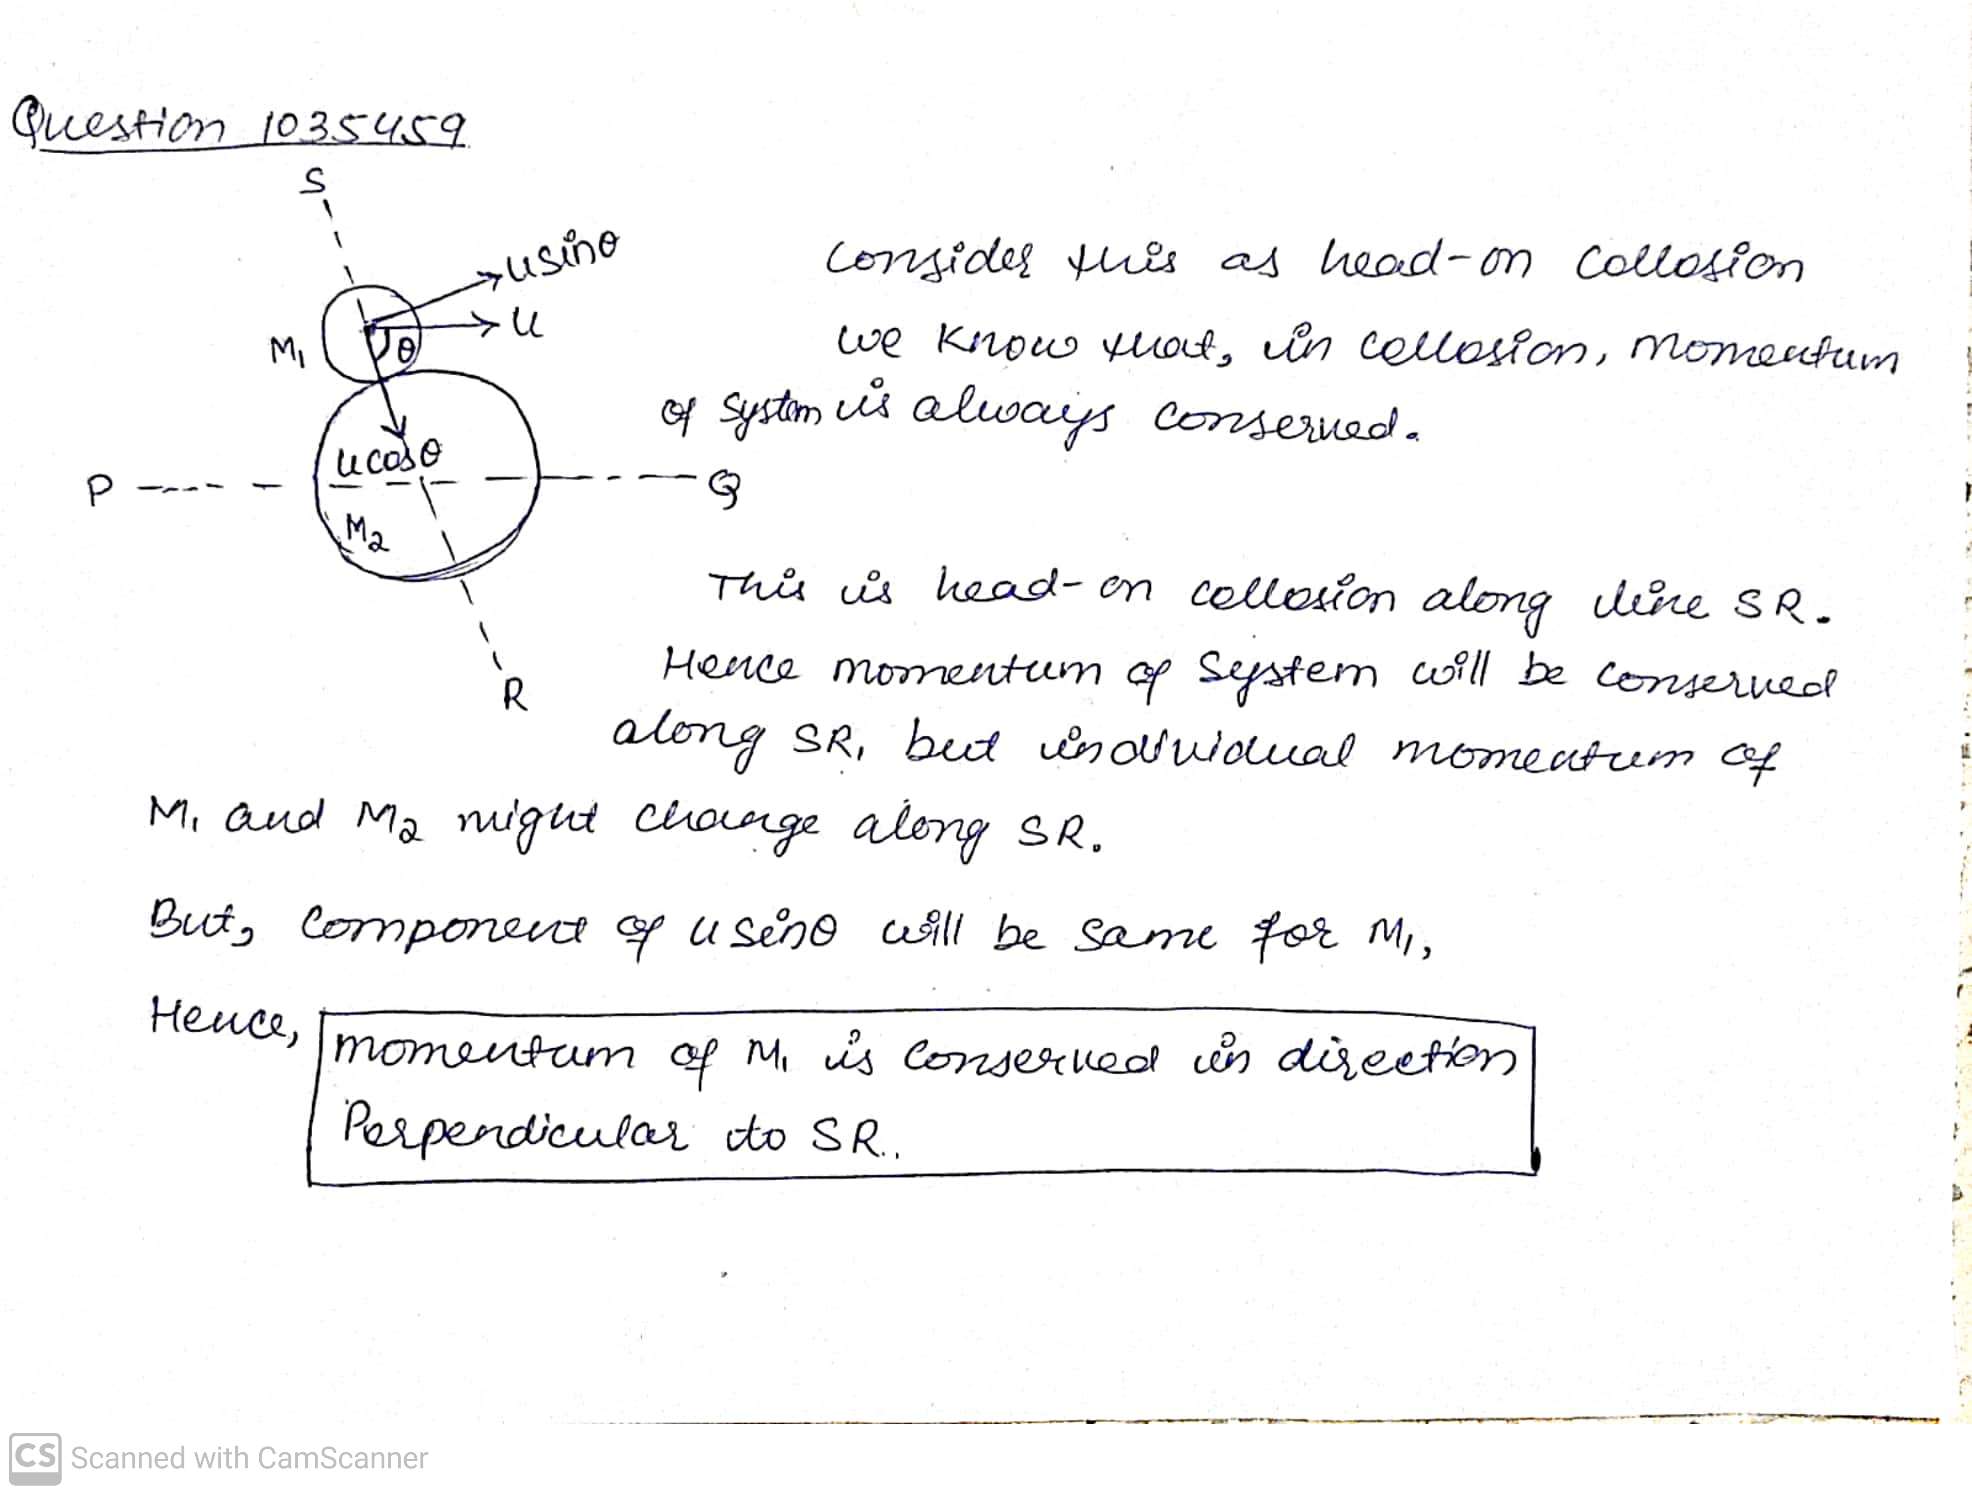 Question 1035459
S
usinθ
u
M1
θ
ucosθ
P
Q
M2
R
Consider this as head-on Collosion
we know that, in collosion, momentum
of system is always conserved.
This is head-on collosion along line SR.
Hence momentum of System will be conserved
along SR, but individual momentum of
M1 and M2 might change along SR.
But, Component of u sinθ will be same for M1,
Hence, momentum of M1 is conserved in direction
Perpendicular to SR.
CS Scanned with CamScanner